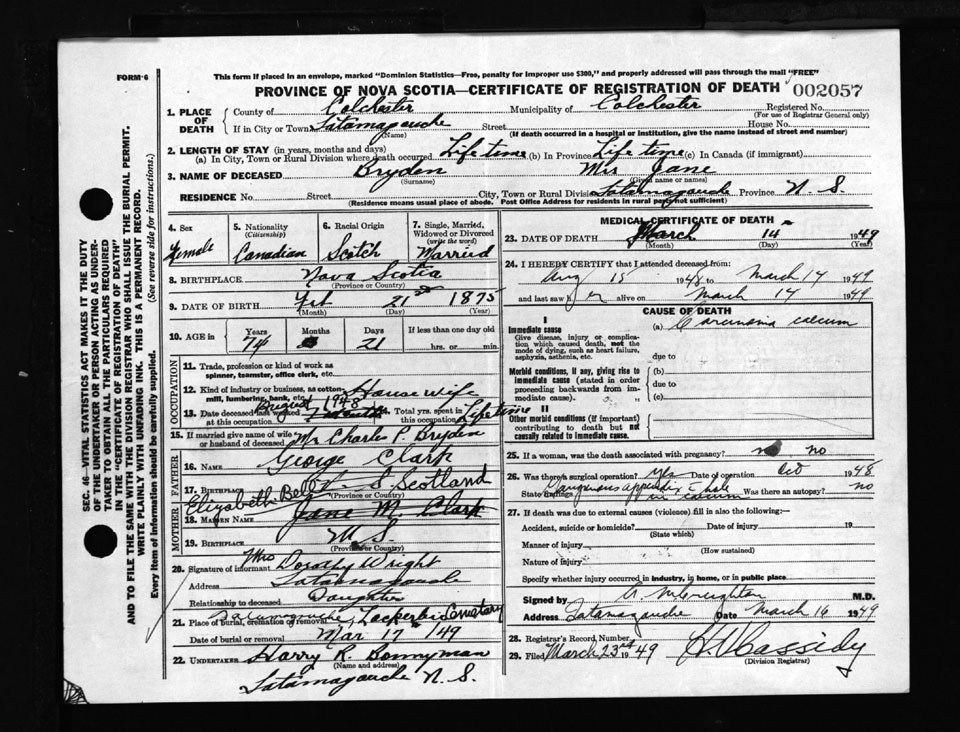 FORM 6
This form if placed in an envelope, marked "Dominion Statistics—Free, penalty for improper use $300," and properly addressed will pass through the mail "FREE"
PROVINCE OF NOVA SCOTIA—CERTIFICATE OF REGISTRATION OF DEATH
002057
1. PLACE OF DEATH
County of Colchester Municipality of Colchester Registered No.
(For use of Registrar General only)
If in City or Town Tatamagouche Street House No.
(Name) (If death occurred in a hospital or institution, give the name instead of street and number)
2. LENGTH OF STAY (in years, months and days)
(a) In City, Town or Rural Division where death occurred Life time (b) In Province Life time (c) In Canada (if immigrant)
3. NAME OF DECEASED Bryden Mrs Jane
(Surname) (Given name or names)
RESIDENCE No. Street City, Town or Rural Division Tatamagouche Province N. S.
(Residence means usual place of abode. Post Office Address for residents in rural parts not sufficient)
4. Sex Female
5. Nationality (Citizenship) Canadian
6. Racial Origin Scotch
7. Single, Married, Widowed or Divorced (write the word) Married
8. BIRTHPLACE Nova Scotia
(Province or Country)
9. DATE OF BIRTH Feb 21 1875
(Month) (Day) (Year)
10. AGE in Years 74 Months Days 21 If less than one day old hrs. or min.
OCCUPATION
11. Trade, profession or kind of work as spinner, teamster, office clerk, etc.
12. Kind of industry or business, as cotton mill, lumbering, bank, etc. House wife
13. Date deceased last worked at this occupation August 1948 14. Total yrs. spent in this occupation Life time
15. If married give name of wife or husband of deceased Mr Charles F. Bryden
FATHER
16. NAME George Clark
17. BIRTHPLACE Scotland
(Province or Country)
MOTHER
Elizabeth Bell
18. MAIDEN NAME Jane M Clark
19. BIRTHPLACE N. S.
(Province or Country)
20. Signature of informant Mrs Dorothy Wright
Address Tatamagouche
Relationship to deceased Daughter
21. Place of burial, cremation or removal Tatamagouche Lockerbie Cemetary
Date of burial or removal Mar 17th /49
22. UNDERTAKER Harry R. Bonnyman
(Name and address)
Tatamagouche N. S.
MEDICAL CERTIFICATE OF DEATH
23. DATE OF DEATH March 14 1949
(Month) (Day) (Year)
24. I HEREBY CERTIFY that I attended deceased from:
Aug 15 1948 to March 14 1949
and last saw her alive on March 14 1949
CAUSE OF DEATH
I
Immediate cause
Give disease, injury or complication which caused death, not the mode of dying, such as heart failure, asphyxia, asthenia, etc.
(a) Carcinoma caecum
due to
Morbid conditions, if any, giving rise to immediate cause (stated in order proceeding backwards from immediate cause).
(b)
due to
(c)
II
Other morbid conditions (if important) contributing to death but not causally related to immediate cause.
25. If a woman, was the death associated with pregnancy? no
26. Was there a surgical operation? Yes Date of operation Oct 1948
State findings Gangrenous appendix c hole in caecum Was there an autopsy? no
27. If death was due to external causes (violence) fill in also the following:—
Accident, suicide or homicide? Date of injury 19
(State which)
Manner of injury
(How sustained)
Nature of injury
Specify whether injury occurred in industry, in home, or in public place
Signed by McCreighton M.D.
Address Tatamagouche Date March 16 1949
28. Registrar's Record Number
29. Filed March 23rd 1949 Cassidy
(Division Registrar)
SEC. 46—VITAL STATISTICS ACT MAKES IT THE DUTY
OF THE UNDERTAKER OR PERSON ACTING AS UNDERTAKER
TO OBTAIN ALL THE PARTICULARS REQUIRED
IN THE "CERTIFICATE OF REGISTRATION OF DEATH"
AND TO FILE THE SAME WITH THE DIVISION REGISTRAR WHO SHALL ISSUE THE BURIAL PERMIT.
WRITE PLAINLY WITH UNFADING INK. THIS IS A PERMANENT RECORD.
Every item of information should be carefully supplied. (See reverse side for instructions.)